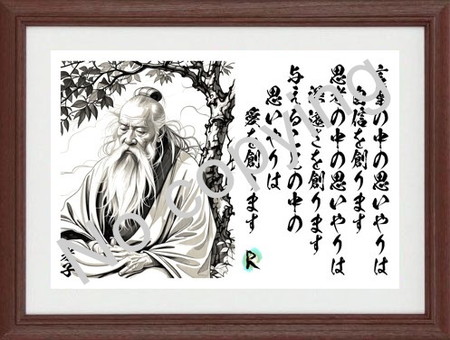 言葉の中の思いやりは
自信を創ります
思考の中の思いやりは
深遠さを創ります
与えることの中の
思いやりは
愛を創ります
R
老子
No copying